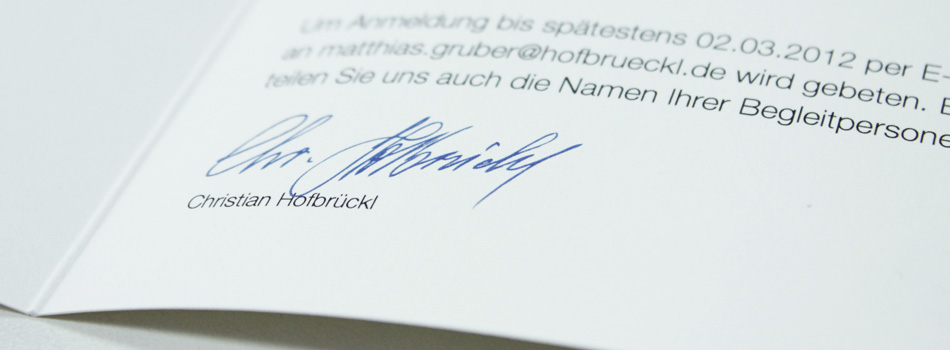 Um Anmeldung bis spätestens 02.03.2012 per E-
an matthias.gruber@hofbrueckl.de wird gebeten. B
teilen Sie uns auch die Namen Ihrer Begleitpersone
Chr. Hofbrückl
Christian Hofbrückl